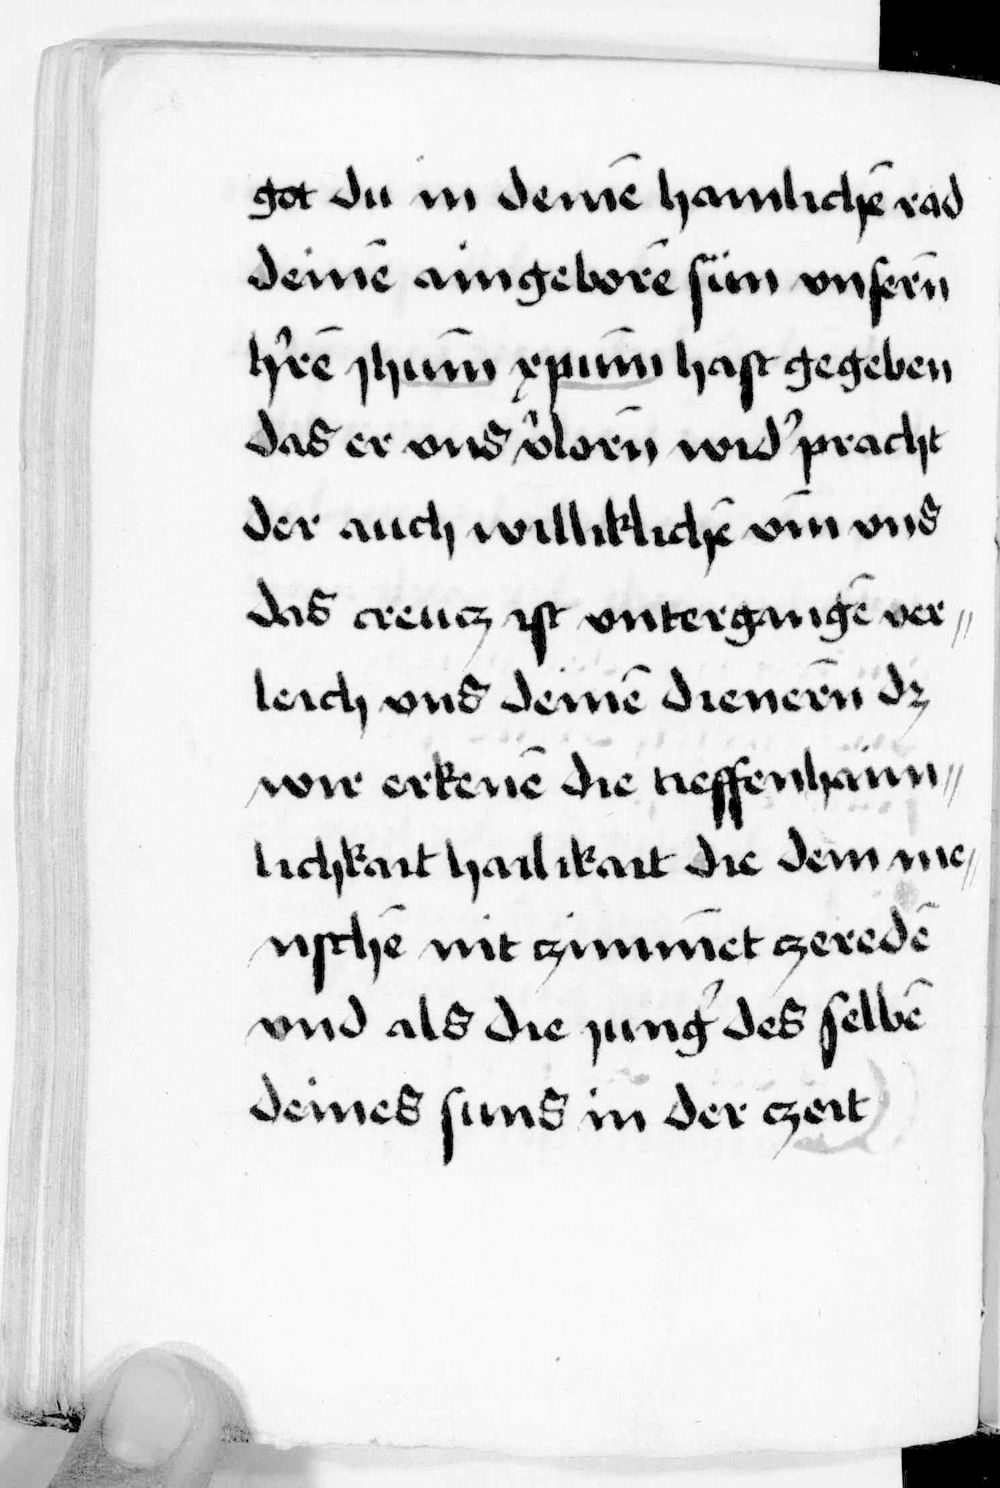 got du in deinē hamlichē rad
deinē aingeborē sün vnserñ
hʾrē jhum̄ xpum̄ hast gegeben
das er vns vʾlorñ widʾpracht
der auch williklichē vm̄ vns
das creucz ist vntergangē ver〃
leich vns deinē dienerñ dz
wir erkenē die tieffenhaim〃
lichkait hailikait die dem me〃
nschē nit czimm̄et czeredē
vnd als die jungʾ des selbē
deines suns in der czeit